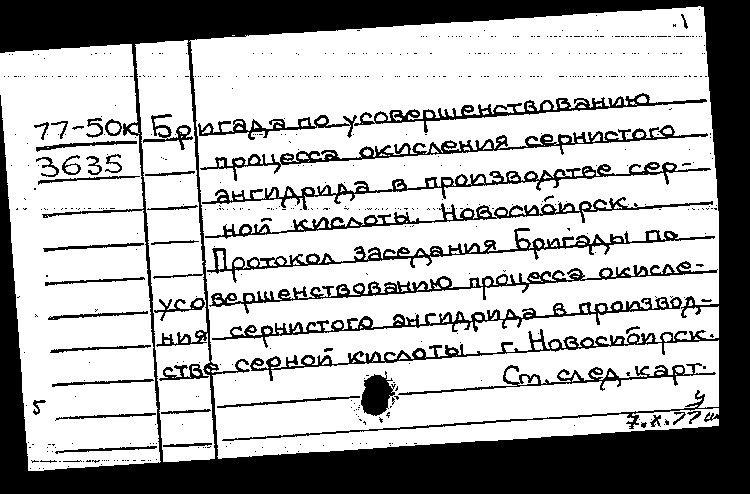 .1
77-50к Бригада по усовершенствованию
3635 процесса окисления сернистого
ангидрида в производстве сер-
ной кислоты. Новосибирск.
Протокол заседания Бригады по
усовершенствованию процесса окисле-
ния сернистого ангидрида в производ-
стве серной кислоты. г. Новосибирск.
См. след. карт.
5
7.X.77